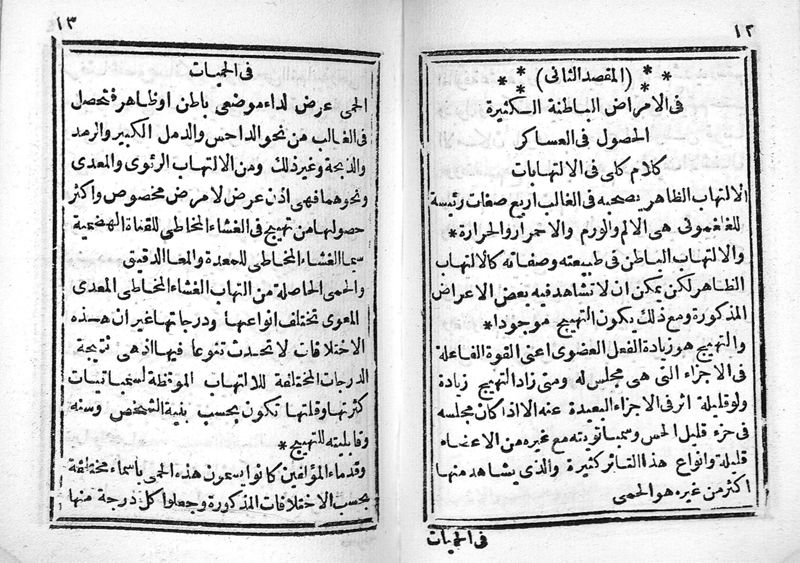 ١٢
(المقصد الثانى)
فى الامراض الباطنة الكثيرة
الحصول فى العساكر
كلام كلى فى الالتهابات
الالتهاب الظاهر يصحبه فى الغالب اربع صفات رئيسة
للفلغمونى هى الالم والورم والاحمرار والحرارة *
والالتهاب الباطن فى طبيعته وصفاته كالالتهاب
الظاهر لكن يمكن ان لا تشاهد فيه بعض الاعراض
المذكورة ومع ذلك يكون التهييج موجودا *
والتهييج هو زيادة الفعل العضوى اعنى القوة الفاعلة
فى الاجزاء التى هى مجلس له ومتى زاد التهييج زيادة
ولو قليلة اثر فى الاجزاء البعيدة عنه الا اذا كان مجلسه
فى جزء قليل الحس وسمپاتويته مع غيره من الاعضاء
قليلة وانواع هذا التاثر كثيرة والذى يشاهد منها
اكثر من غيره هو الحمى
فى الحميات
١٣
فى الحميات
الحمى عرض لداء موضعى باطن او ظاهر فتحصل
فى الغالب من نحو الداحس والدمل الكبير والرمد
والذبحة وغير ذلك ومن الالتهاب الرئوى والمعدى
ونحوهما فهى اذن عرض لا مرض مخصوص واكثر
حصولها من تهييج فى الغشاء المخاطى للقناة الهضمية
سيما الغشاء المخاطى للمعدة والمعا الدقيق
والحمى الحاصلة من التهاب الغشاء المخاطى المعدى
المعوى تختلف انواعها ودرجاتها غير ان هذه
الاختلافات لا تحدث تنوعا فيها اذ هى نتيجة
الدرجات المختلفة للالتهاب الموقظة لسمپاتيات
كثرتها وقلتها تكون بحسب بنية الشخص وسنه
وقابليته للتهييج *
وقدماء المؤلفين كانوا يسمون هذه الحمى باسماء مختلفة
بحسب الاختلافات المذكورة وجعلوا كل درجة منها